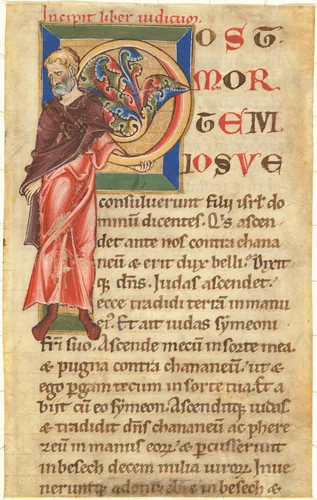 Incipit liber iudicum.
POST
MOR
TEM
IOSVE
consuluerunt filij isrl do
minũ dicentes. Qis ascen
det ante nos contra chana
neũ & erit dux belli. Dixit
q; dñs. Iudas ascendet.
ecce tradidi terrã in manu
ei. Et ait iudas symeoni
fr̃i suo. Ascende mecũ in sorte mea.
& pugna contra chananeũ. ut &
ego pgam tecum in sorte tua. Et a
bijt cũ eo symeon. Ascenditq; iudas
& tradidit dñs chananeũ ac phere
zeũ in manus eorꝝ & percusserunt
in besech decem milia uirorꝝ. Inue
neruntq; adoni be in besech &